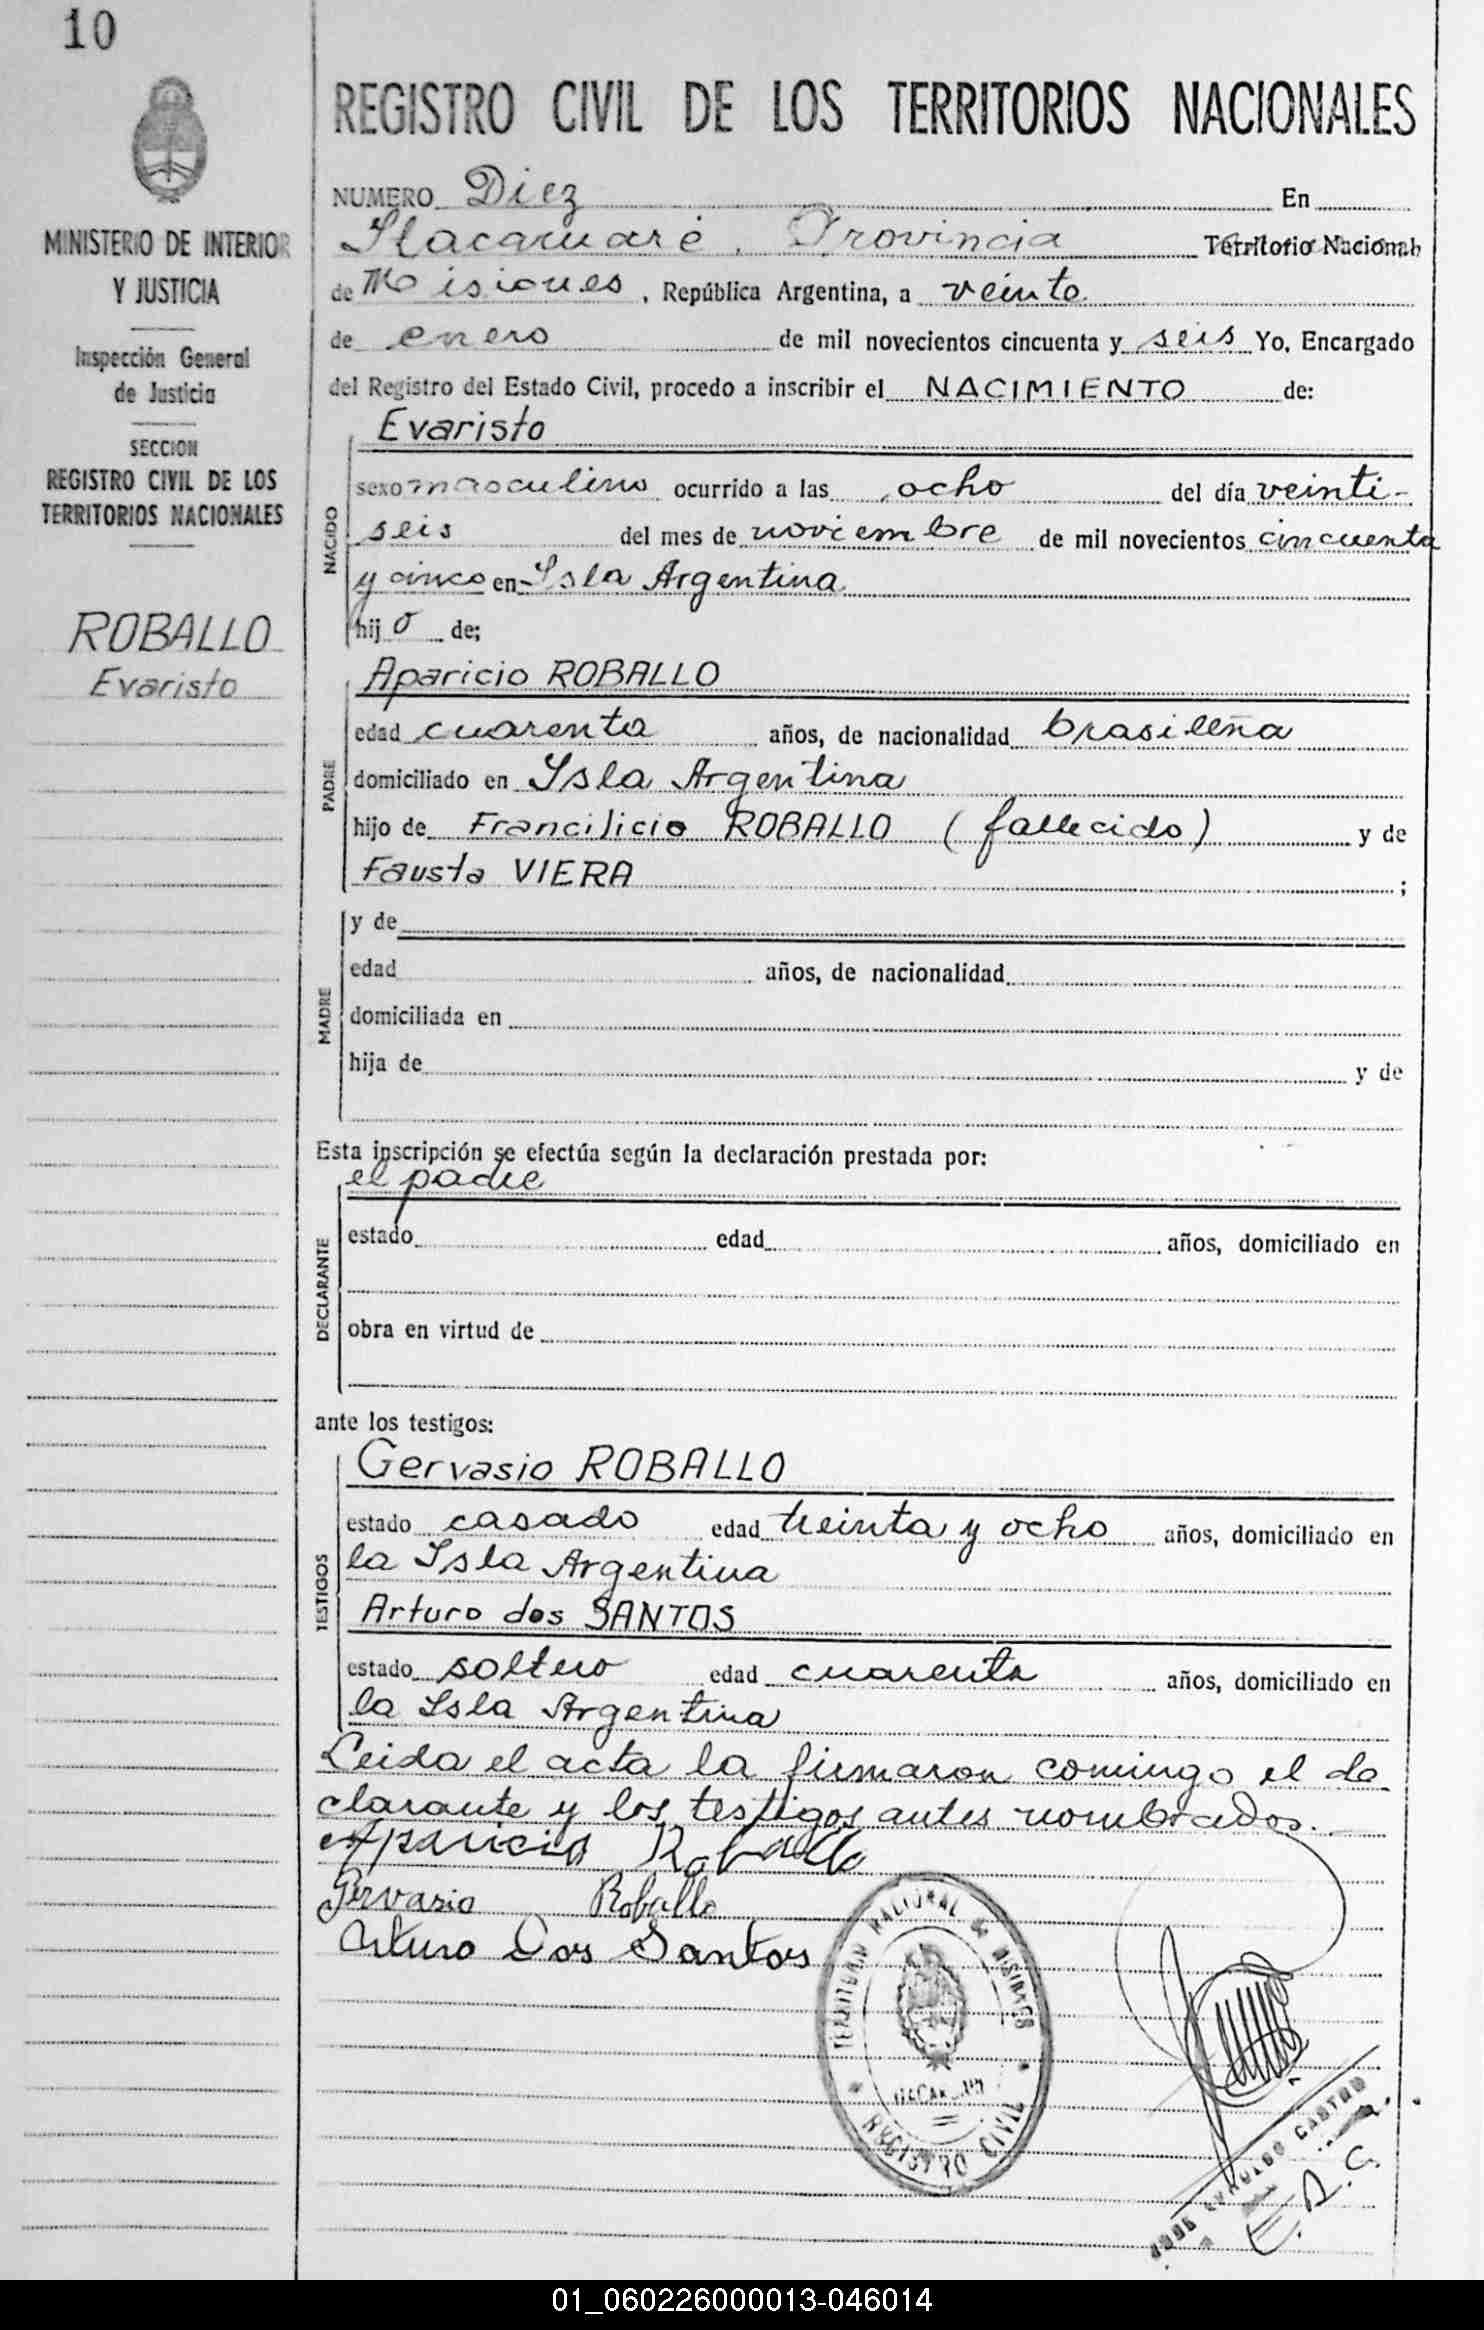 10
MINISTERIO DE INTERIOR
Y JUSTICIA
Inspección General
de Justicia
SECCION
REGISTRO CIVIL DE LOS
TERRITORIOS NACIONALES
ROBALLO
Evaristo
REGISTRO CIVIL DE LOS TERRITORIOS NACIONALES
NUMERO Diez En
Itacaruaré, Provincia Territorio Nacional
de Misiones, República Argentina, a veinte
de enero de mil novecientos cincuenta y seis Yo, Encargado
del Registro del Estado Civil, procedo a inscribir el NACIMIENTO de:
NACIDO
Evaristo
sexo masculino ocurrido a las ocho del día veinti-
seis del mes de noviembre de mil novecientos cincuenta
y cinco en Isla Argentina
hijo de;
PADRE
Aparicio ROBALLO
edad cuarenta años, de nacionalidad brasileña
domiciliado en Isla Argentina
hijo de Francilicio ROBALLO (fallecido) y de
Fausta VIERA ;
MADRE
y de
edad años, de nacionalidad
domiciliada en
hija de y de
Esta inscripción se efectúa según la declaración prestada por:
DECLARANTE
el padre
estado edad años, domiciliado en
obra en virtud de
ante los testigos:
TESTIGOS
Gervasio ROBALLO
estado casado edad treinta y ocho años, domiciliado en
la Isla Argentina
Arturo dos SANTOS
estado soltero edad cuarenta años, domiciliado en
la Isla Argentina
Leida el acta la firmaron comingo el de
clarante y los testigos antes nombrados.
Aparicio Roballo
Gervasio Roballo
Arturo Dos Santos
TERRITORIO NACIONAL DE MISIONES
REGISTRO CIVIL
CASTRO
E.R.C.
01_060226000013-046014